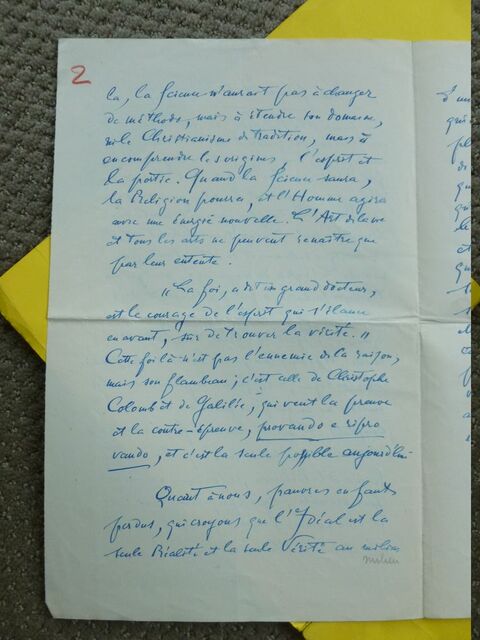 2
la, la Science n'aurait pas à changer
de méthode, mais à étendre son domaine,
ni le Christianisme de tradition, mais à
en comprendre les origines, l'esprit et
la portée. Quand la Science saura,
la Religion pourra, et l'Homme agira
avec une énergie nouvelle. L'Art de la vie
et tous les arts ne peuvent renaître que
par leur entente.
"La foi, a dit un grand docteur,
est le courage de l'esprit qui s'élance
en avant, sûr de trouver la vérité."
Cette foi là n'est pas l'ennemie de la raison,
mais son flambeau; c'est celle de Christophe
Colomb et de Galilée, qui veut la preuve
et la contre-épreuve, provando e ripro
vando, et c'est la seule possible aujourd'hui
Quant à nous, pauvres enfants
perdus, qui croyons que l'Idéal est la
seule Réalité et la seule Vérité au milieu
milieu